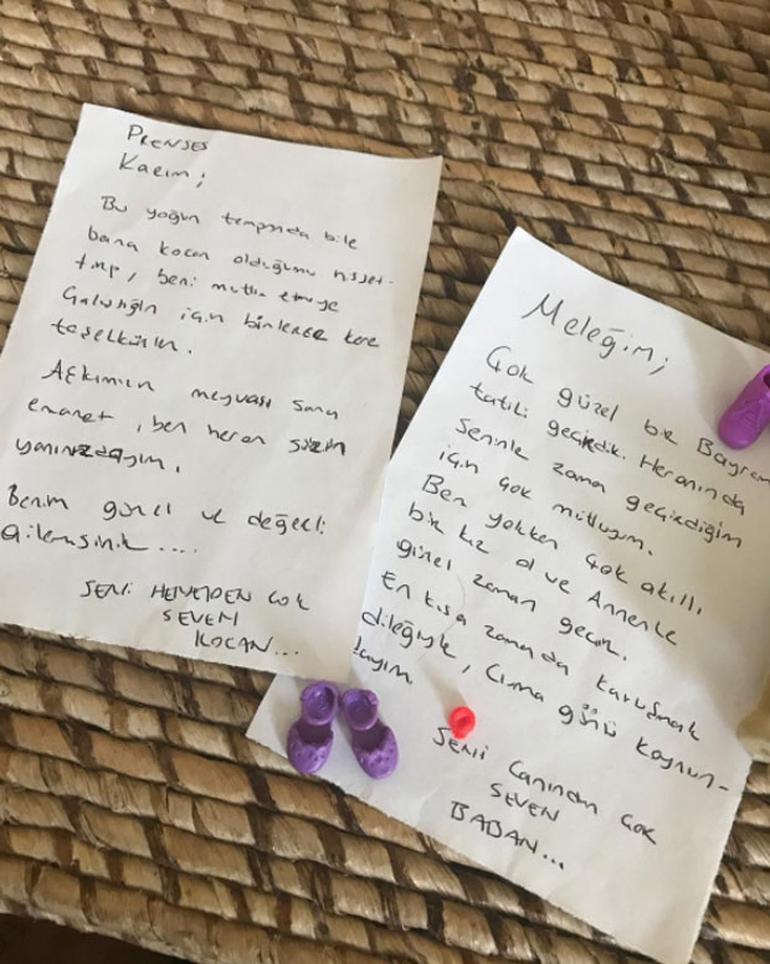 PRENSES
Karım;
Bu yoğun tempoda bile
bana kocan olduğumu hisset-
tirip, beni mutlu etmeye
Çalıştığın için binlerce kere
teşekkürler.
Aşkımızın meyvası sana
emanet, ben heran sizin
yanınızdayım.
Benim güzel ve değerli
ailemsiniz....
SENİ HERŞEYDEN ÇOK
SEVEN
KOCAN...
Meleğim;
Çok güzel bir Bayram
tatili geçirdik. Heranında
Seninle zaman geçirdiğim
için çok mutluyum.
Ben yokken çok akıllı
bir kız ol ve Annenle
güzel zaman geçir.
En kısa zamanda kavuşmak
dileğiyle, Cuma günü koynun-
dayım.
SENİ Canından Çok
SEVEN
BABAN...